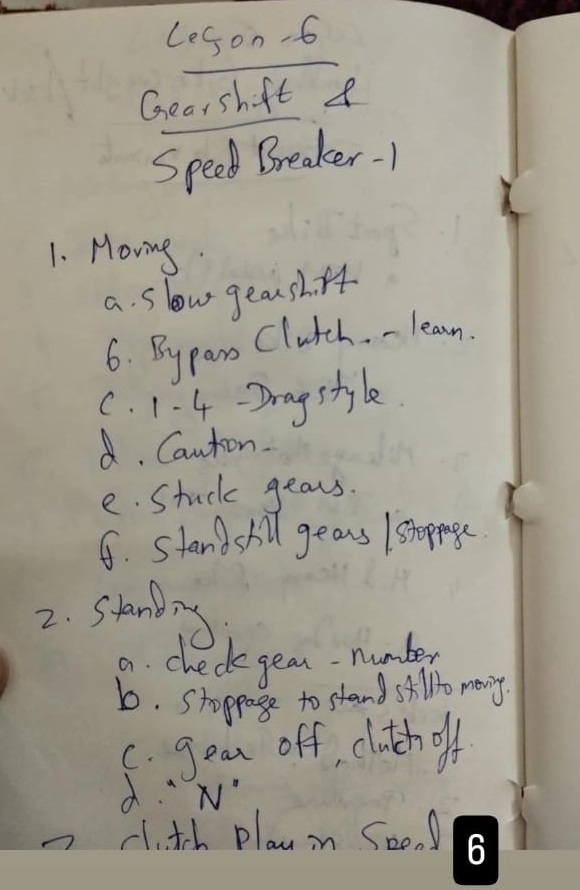 Leçon-6
Gearshift &
Speed Breaker-1
1. Moving.
a. Slow gearshift
b. Bypass Clutch. - learn.
c. 1-4 -Drag style.
d. Caution-
e. Stuck gears.
f. Standstill gears / stoppage.
2. Standing.
a. check gear - number
b. stoppage to stand still to moving.
c. gear off, clutch off.
d. "N"
Clutch Play in Speed
6